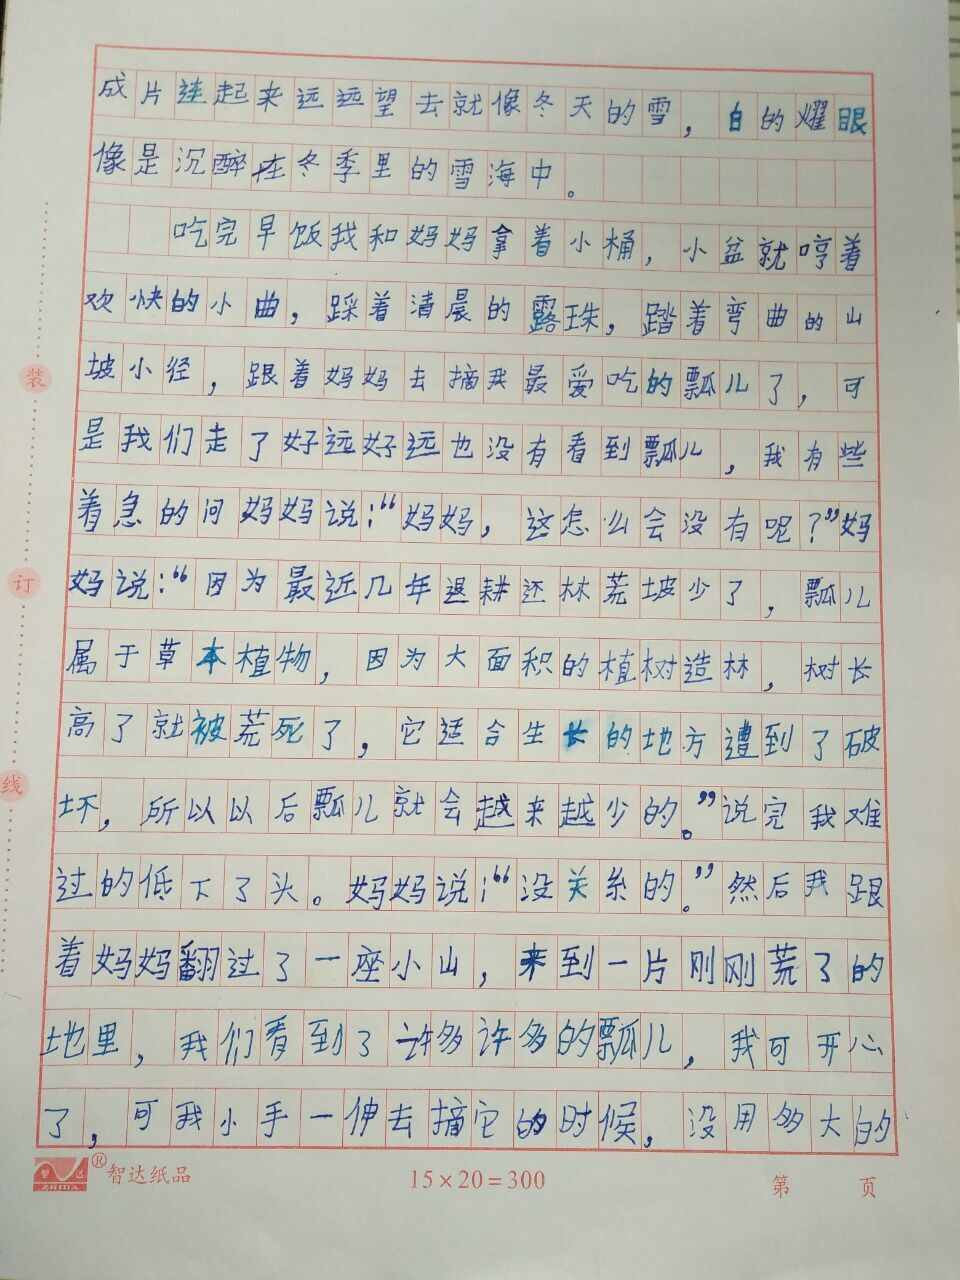 成片连起来远远望去就像冬天的雪，白的耀眼
像是沉醉在冬季里的雪海中。
吃完早饭我和妈妈拿着小桶，小盆就哼着
欢快的小曲，踩着清晨的露珠，踏着弯曲的山
坡小径，跟着妈妈去摘我最爱吃的瓢儿了，可
是我们走了好远好远也没有看到瓢儿，我有些
着急的问妈妈说：“妈妈，这怎么会没有呢？”妈
妈说：“因为最近几年退耕还林荒坡少了，瓢儿
属于草本植物，因为大面积的植树造林，树长
高了就被荒死了，它适合生长的地方遭到了破
坏，所以以后瓢儿就会越来越少的。”说完我难
过的低下了头。妈妈说：“没关系的。”然后我跟
着妈妈翻过了一座小山，来到一片刚刚荒了的
地里，我们看到了许多许多的瓢儿，我可开心
了，可我小手一伸去摘它的时候，没用多大的
装
订
线
智达
ZHIDA
® 智达纸品
15×20=300
第 页